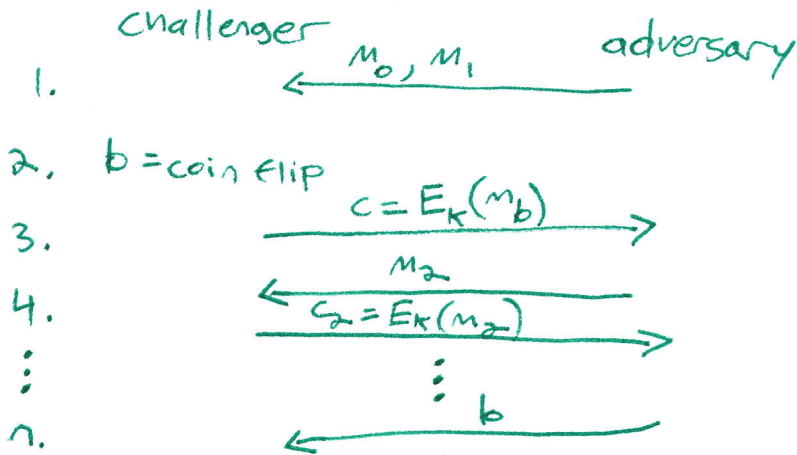 challenger adversary
1. M₀, M₁
2. b = coin flip
3. c = E_K(m_b)
4. m₂
c₂ = E_K(m₂)
⋮ ⋮
n. b